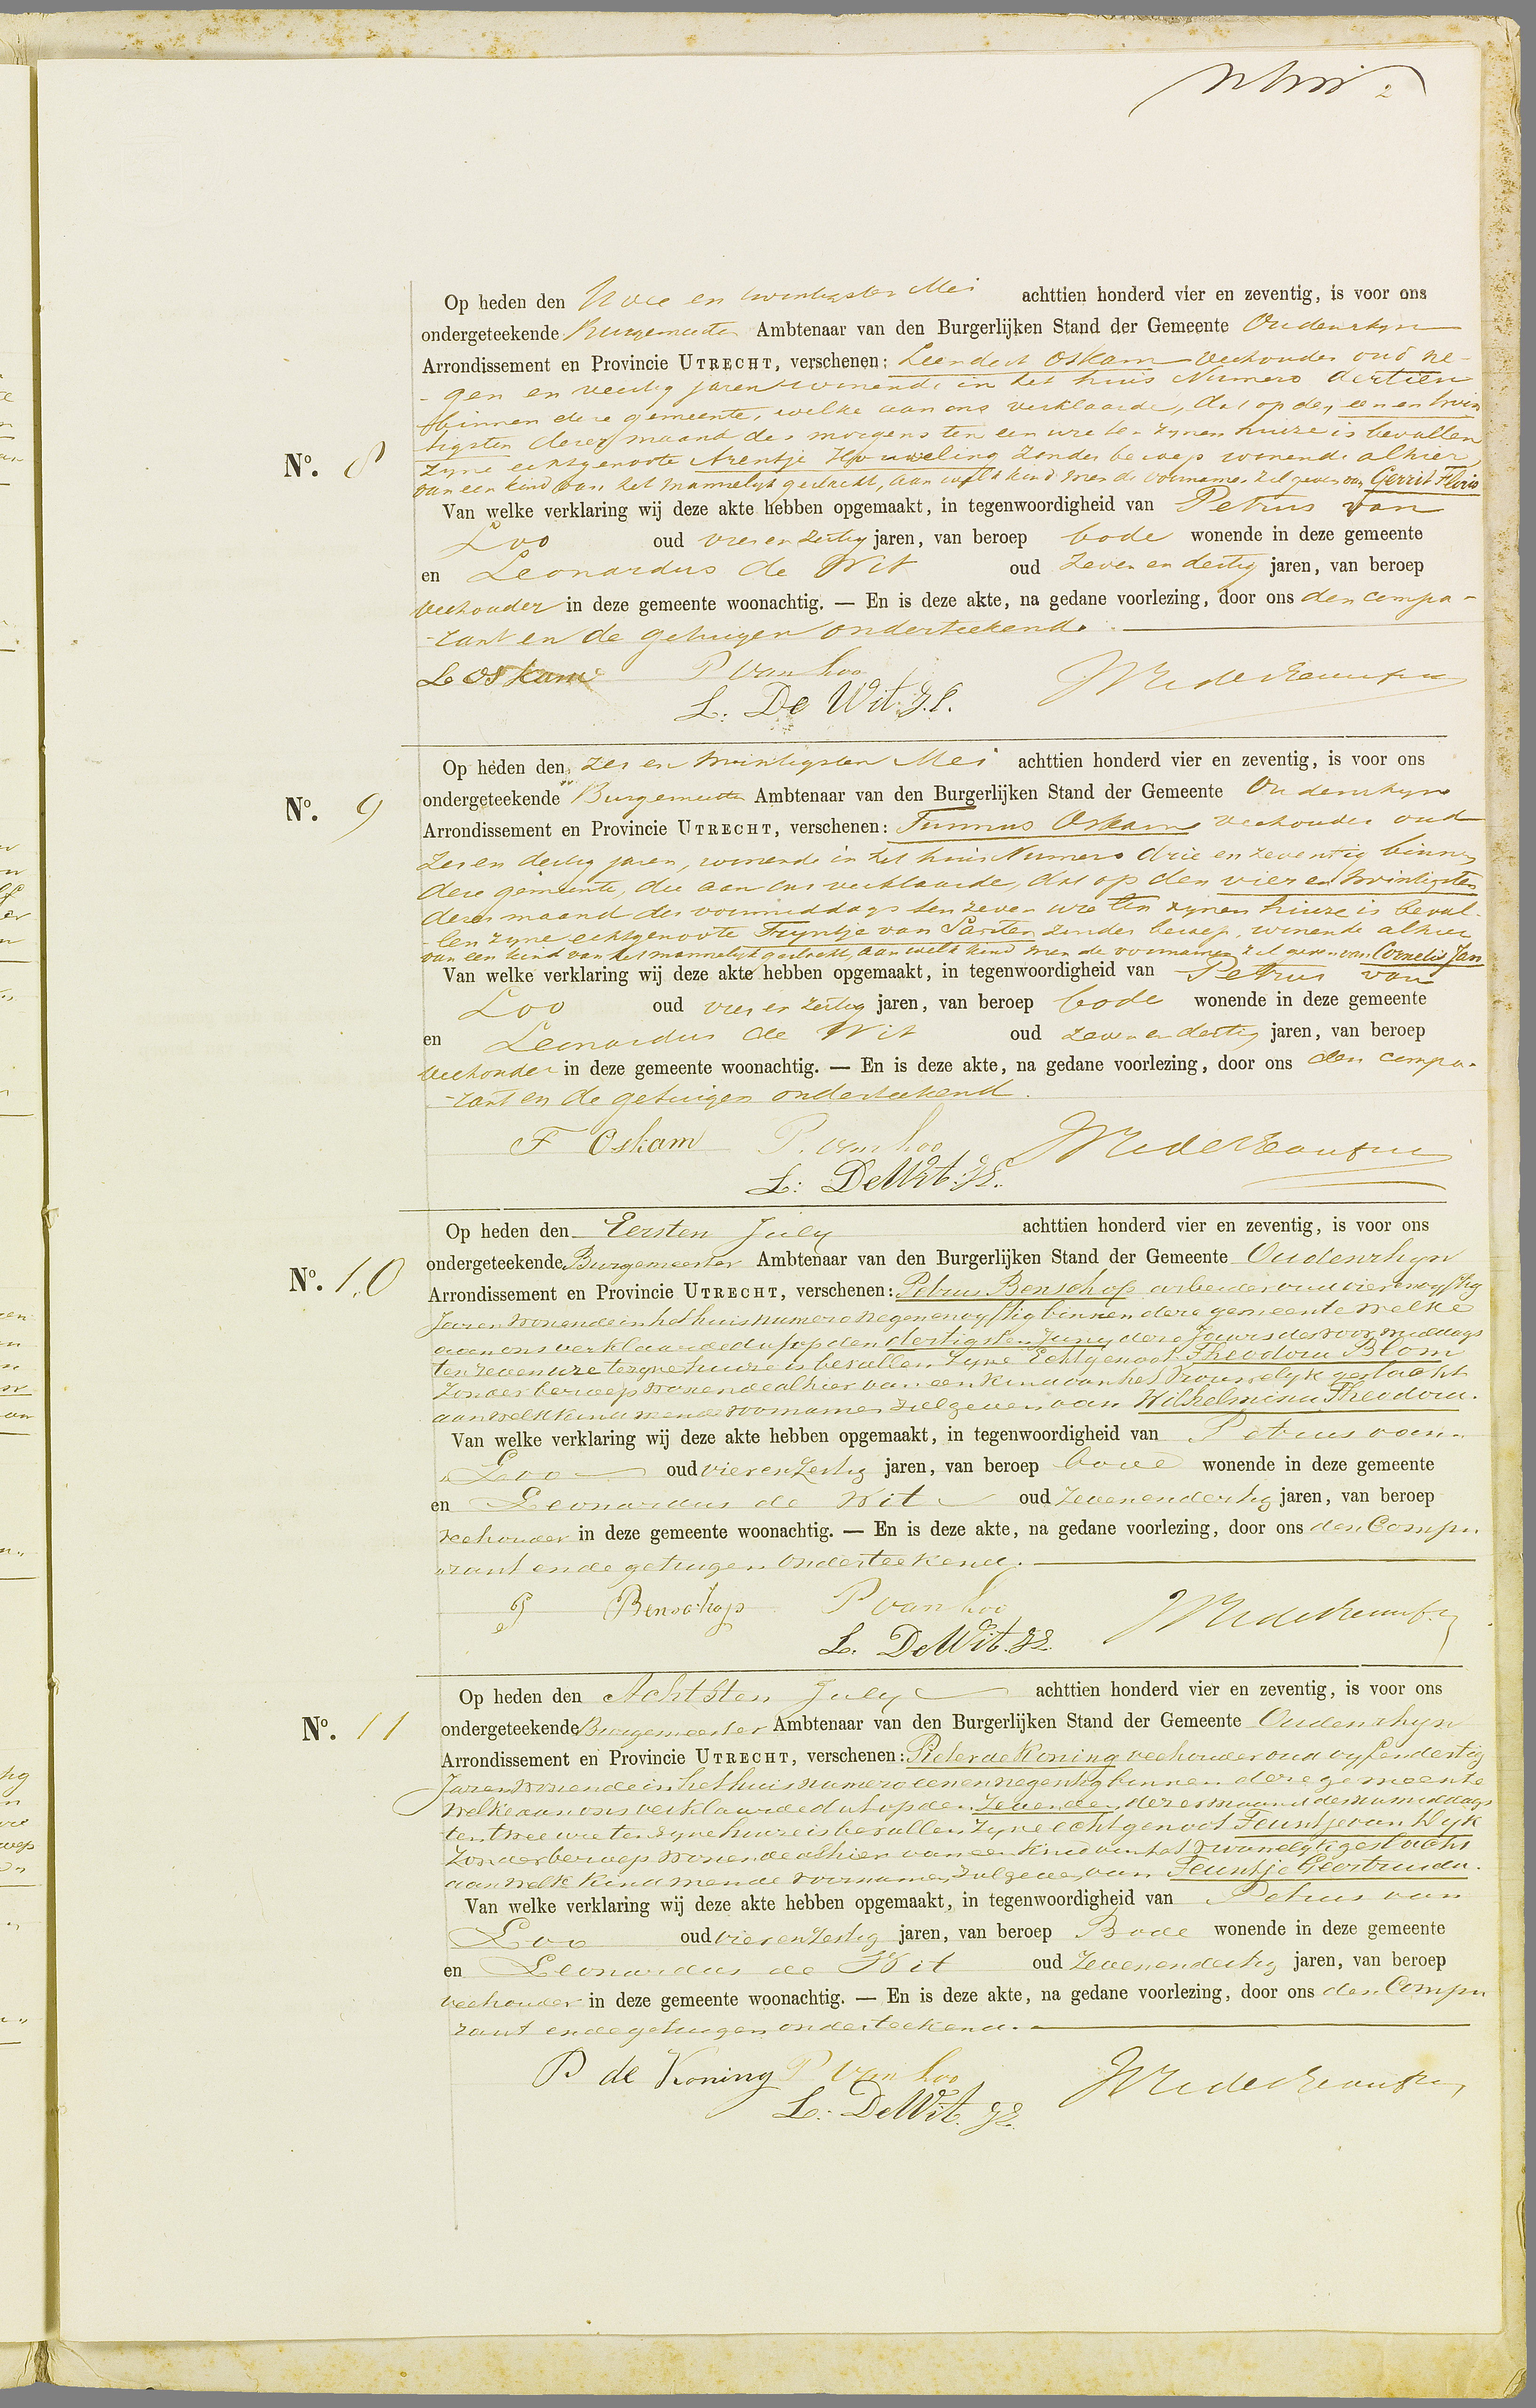 2
Op heden den Twee en twintigsten Mei achttien honderd vier en zeventig, is voor ons
ondergeteekende Burgemeester Ambtenaar van den Burgerlijken Stand der Gemeente Oudenrhyn
Arrondissement en Provincie UTRECHT, verschenen: Leendert Oskam veehouder oud ne-
- gen en veertig jaren wonende in het huis Numero dertien
binnen deze gemeente, welke aan ons verklaarde, dat op den een en twin
tigsten dezer maand des morgens ten een ure ten zynen huize is bevallen
No. 8
zyne echtgenoote Arentje Houweling zonder beroep wonende alhier,
van een kind van het mannelyk geslacht, aan welk kind men de voornamen zal geven van Gerrit Floris
Van welke verklaring wij deze akte hebben opgemaakt, in tegenwoordigheid van Petrus van
Loo oud vier en zestig jaren, van beroep bode wonende in deze gemeente
en Leonardus de Wit oud zeven en dertig jaren, van beroep
veehouder in deze gemeente woonachtig. — En is deze akte, na gedane voorlezing, door ons den compa-
-rant en de getuigen onderteekend.
L Oskam P van Loo
L. De Wit. Jz.
Op heden den zes en twintigsten Mei achttien honderd vier en zeventig, is voor ons
No. 9 ondergeteekende Burgemeester Ambtenaar van den Burgerlijken Stand der Gemeente Oudenrhyn
Arrondissement en Provincie UTRECHT, verschenen: Teunnus Oskam veehouder oud
zes en dertig jaren, wonende in het huis Numero drie en zeventig binnen
deze gemeente, die aan ons verklaarde, dat op den vier en twintigsten
dezer maand des voormiddags ten zeven ure ten zynen huize is beval-
-len zyne echtgenoote Fryntje van Santen zonder beroep, wonende alhier
van een kind van het mannelyk geslacht, aan welk kind men de voornamen zal geven van Cornelis Jan
Van welke verklaring wij deze akte hebben opgemaakt, in tegenwoordigheid van Petrus van
Loo oud vier en zestig jaren, van beroep bode wonende in deze gemeente
en Leonardus de Wit oud zeven en dertig jaren, van beroep
veehouder in deze gemeente woonachtig. — En is deze akte, na gedane voorlezing, door ons den compa-
-rant en de getuigen onderteekend.
F Oskam P. van Loo
L: De Wit. Jz.
Op heden den Eersten July achttien honderd vier en zeventig, is voor ons
No. 10 ondergeteekende Burgemeester Ambtenaar van den Burgerlijken Stand der Gemeente Oudenrhyn
Arrondissement en Provincie UTRECHT, verschenen: Petrus Benschop arbeider oud vierenvyftig
Jaren wonende in het huis numero negenenvyftig binnen deze gemeente welke
aan ons verklaarde dat op den dertigsten Juny dezes Jaars des voormiddags
ten zeven ure ten zyne huize is bevallen zyne Echtgenoot Theodora Blom
zonder beroep wonende alhier van een kind van het Vrouwelyk geslacht
aan welk kind men de voornamen zal geven van Wilhelmina Theodora.
Van welke verklaring wij deze akte hebben opgemaakt, in tegenwoordigheid van Petrus van
Loo oud vier en zestig jaren, van beroep bode wonende in deze gemeente
en Leonardus de Wit oud zevenendertig jaren, van beroep
veehouder in deze gemeente woonachtig. — En is deze akte, na gedane voorlezing, door ons den Compa
rant en de getuigen onderteekend.
P Benschop P van Loo
L. De Wit. Jz.
Op heden den Achtsten July achttien honderd vier en zeventig, is voor ons
No. 11 ondergeteekende Burgemeester Ambtenaar van den Burgerlijken Stand der Gemeente Oudenrhyn
Arrondissement en Provincie UTRECHT, verschenen: Pieter de Koning veehouder oud vyfendertig
Jaren wonende in het huis numero eenennegentig binnen deze gemeente
welke aan ons verklaarde dat op den zevenden dezer maand des namiddags
ten twee ure ten zyne huize is bevallen zyne echtgenoot Teuntje van Wyk
zonder beroep wonende alhier van een kind van het vrouwelyk geslacht
aan welk kind men de voornamen zal geven van Teuntje Geertruida.
Van welke verklaring wij deze akte hebben opgemaakt, in tegenwoordigheid van Petrus van
Loo oud vierenzestig jaren, van beroep Bode wonende in deze gemeente
en Leonardus de Wit oud zevenendertig jaren, van beroep
veehouder in deze gemeente woonachtig. — En is deze akte, na gedane voorlezing, door ons den Compa
rant en de getuigen onderteekend.
P de Koning P van Loo
L: De Wit. Jz.